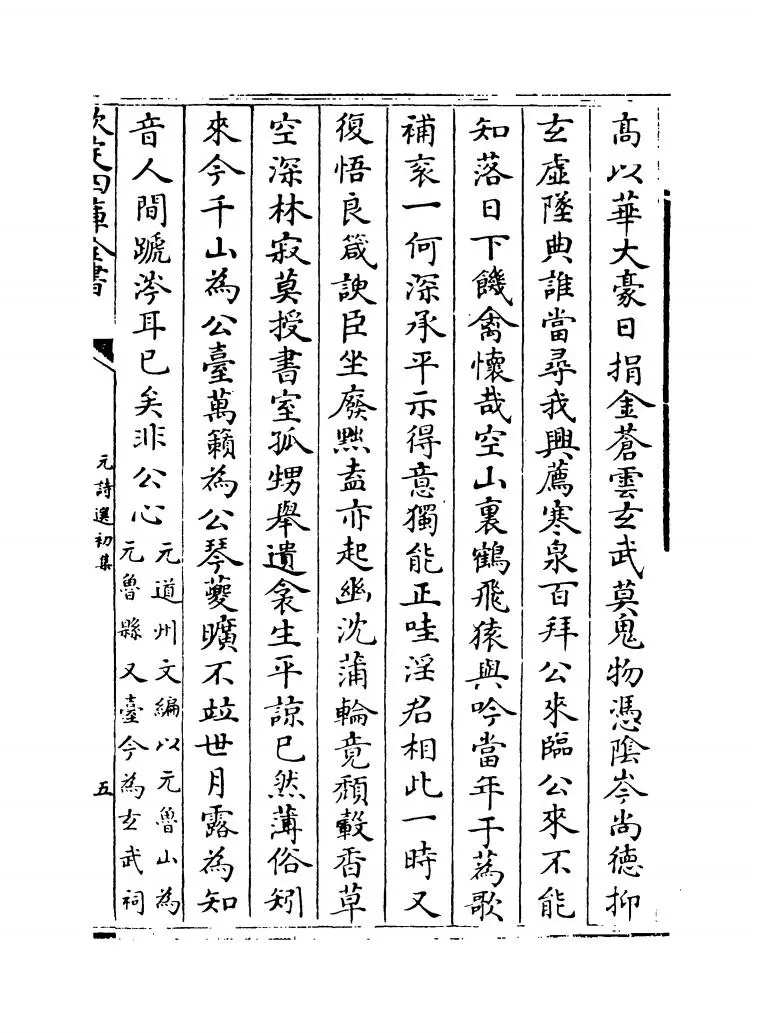 髙以華大豪日捐金蒼雲𤣥武莫鬼物憑隂岑尚徳抑
𤣥虚墜典誰當尋我興薦寒泉百拜公來臨公來不能
知落日下饑禽懷哉空山裏鶴飛猿與吟當年于蒍歌
補衮一何深承平示得意獨能正哇淫君相此一時又
復悟良箴諛臣坐廢黜盍亦起幽沈蒲輪竟頽轂香草
空深林寂莫授書室孤甥舉遺衾生平諒已然薄俗矧
來今千山為公臺萬籟為公琴夔曠不竝世月露為知
音人間蹏涔耳已矣非公心
元道州文編以元魯山為
元魯縣又臺今為𤣥武祠
欽定四庫全書
元詩選初集
五